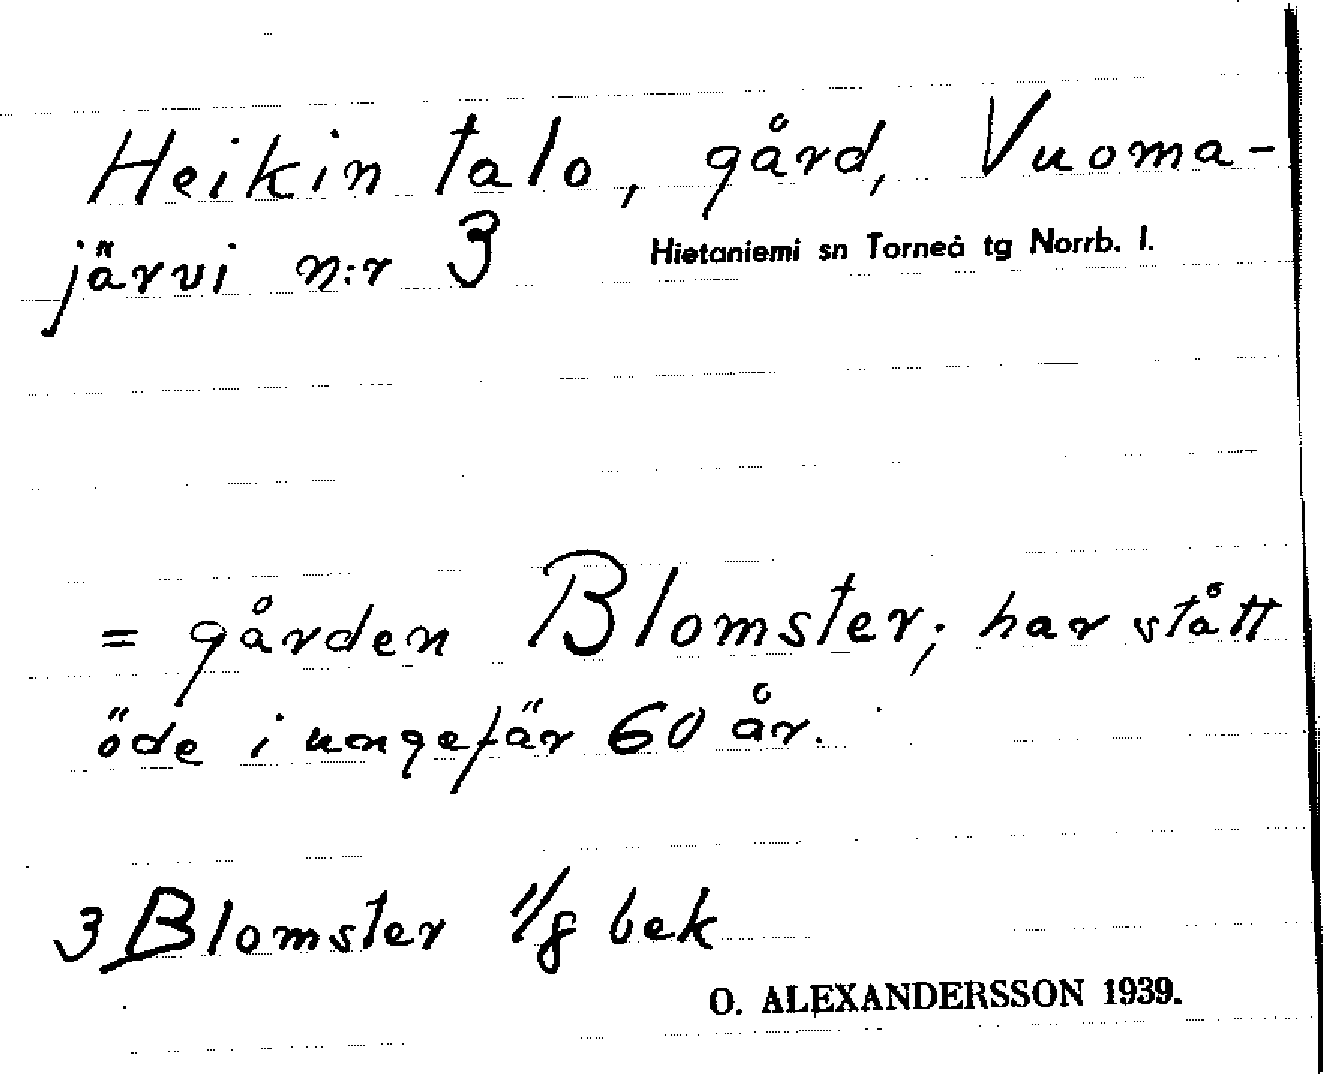 Heikin talo, gård, Vuoma-
järvi n:r 3 Hietaniemi sn Torneå tg Norrb. l.
= gården Blomster; har stått
öde i ungefär 60 år.
3 Blomster 1/8 bek
O. ALEXANDERSSON 1939.